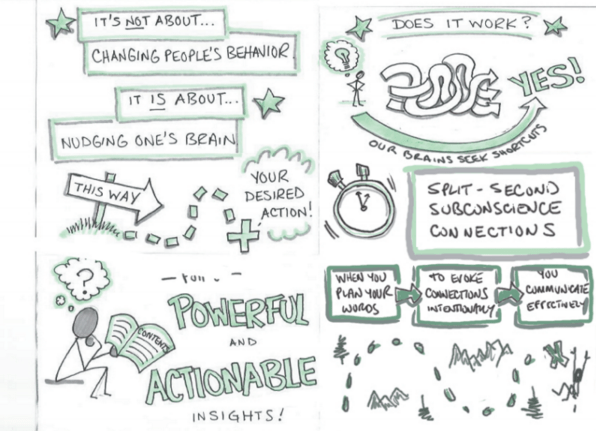 IT'S NOT ABOUT...
CHANGING PEOPLE'S BEHAVIOR
IT IS ABOUT...
NUDGING ONE'S BRAIN
THIS WAY
YOUR
DESIRED
ACTION!
DOES IT WORK?
YES!
OUR BRAINS SEEK SHORTCUTS
SPLIT-SECOND
SUBCONSCIENCE
CONNECTIONS
?
CONTENTS
POWERFUL
AND
ACTIONABLE
INSIGHTS!
WHEN YOU
PLAN YOUR
WORDS
TO EVOKE
CONNECTIONS
INTENTIONALLY
YOU
COMMUNICATE
EFFECTIVELY